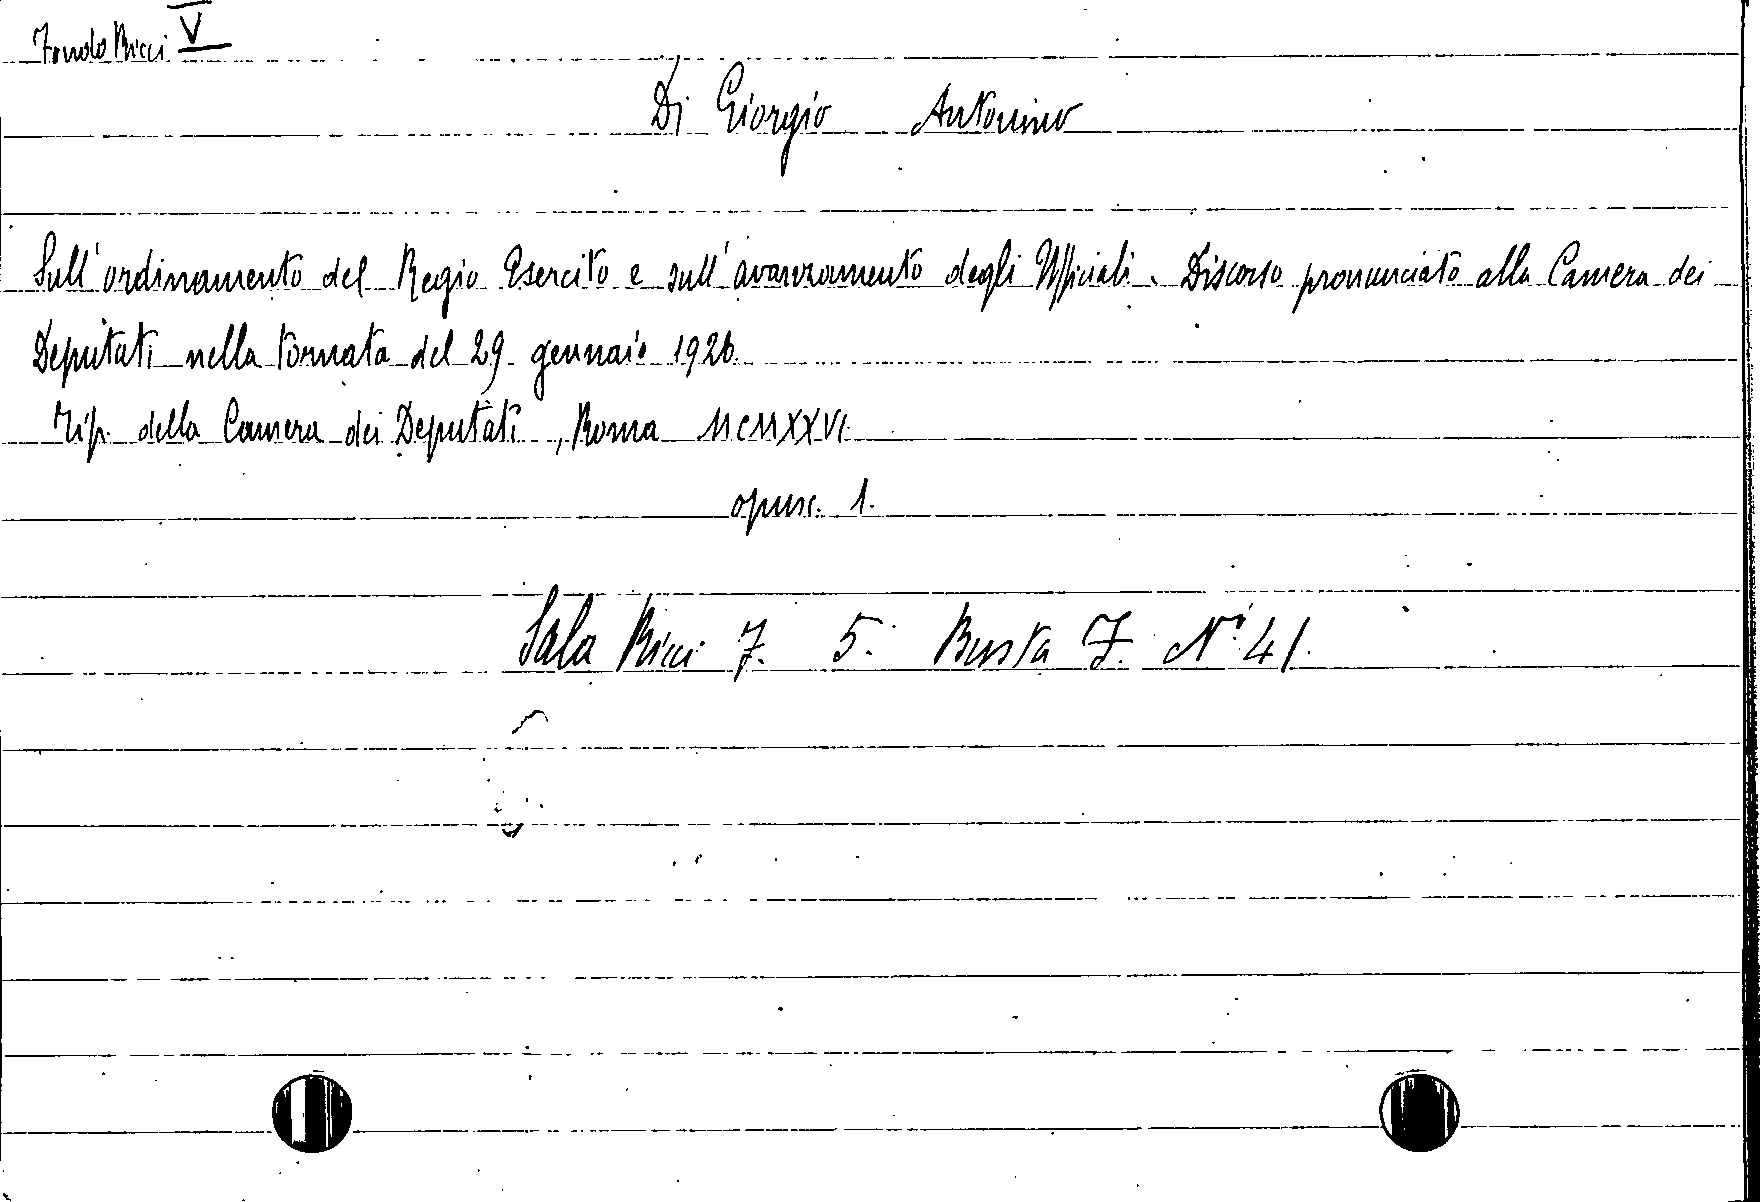 Fondo Ricci V
Di Giorgio Antonino
Sull'ordinamento del Regio Esercito e sull'avanzamento degli Ufficiali. Discorso pronunciato alla Camera dei
Deputati nella tornata del 29 gennaio 1926.
Tip. della Camera dei Deputati, Roma MCMXXVI
opusc. 1.
Sala Ricci 7. 5. Busta J. N° 41.